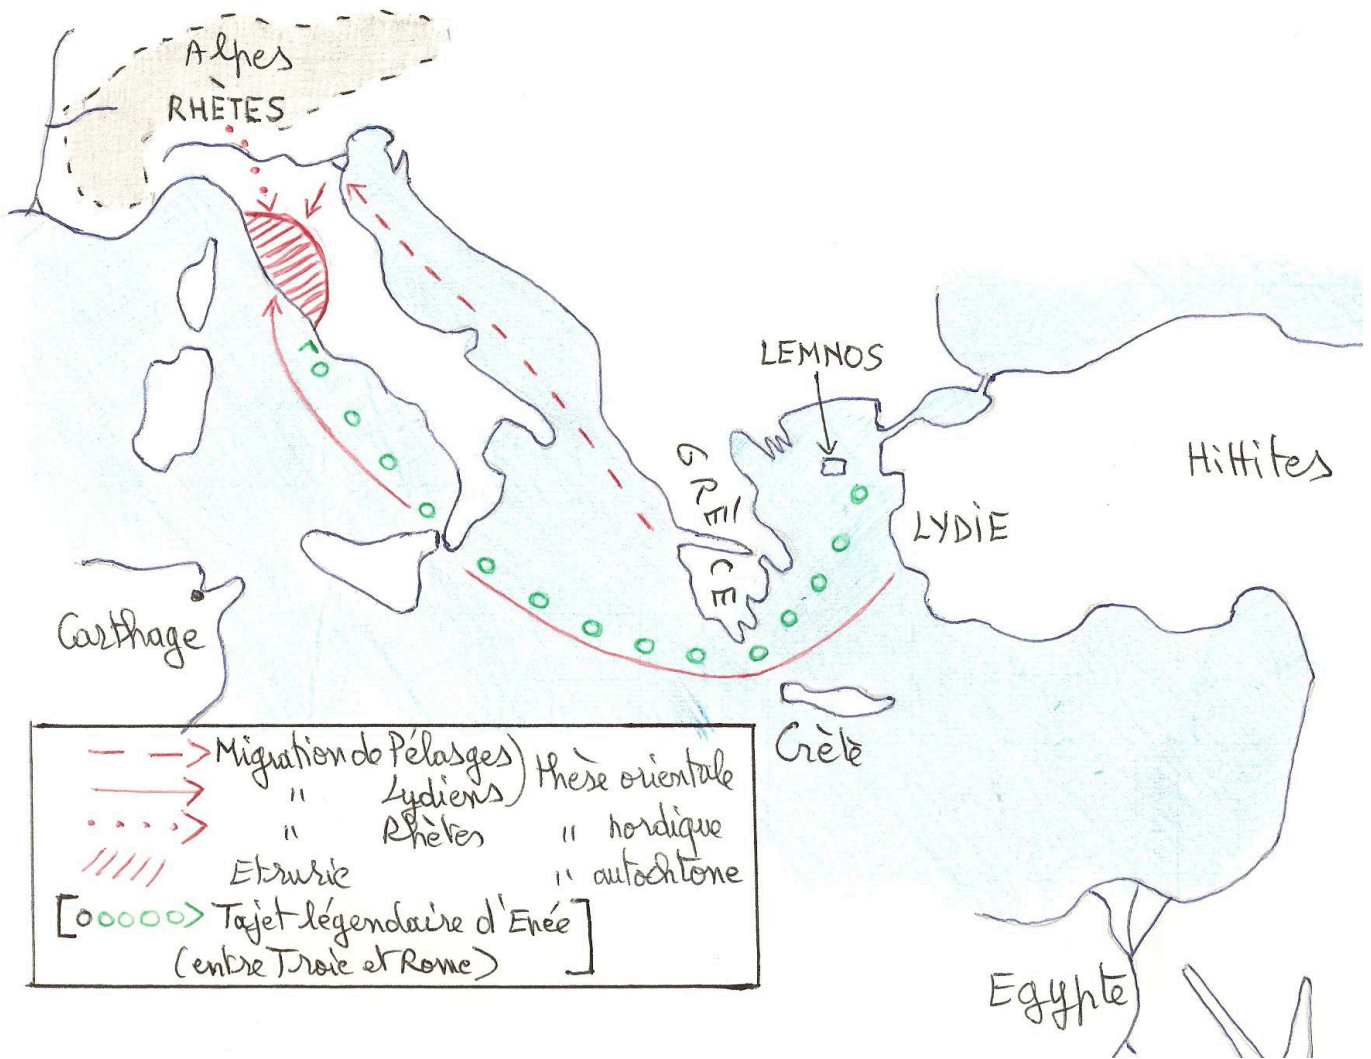 Alpes
RHÈTES
LEMNOS
GRÈCE
Hittites
LYDIE
Carthage
Crète
Migration de Pélasges) thèse orientale
" Lydiens)
" Rhètes " nordique
Etrurie " autochtone
[Tajet légendaire d'Enée
(entre Troie et Rome)]
Egypte